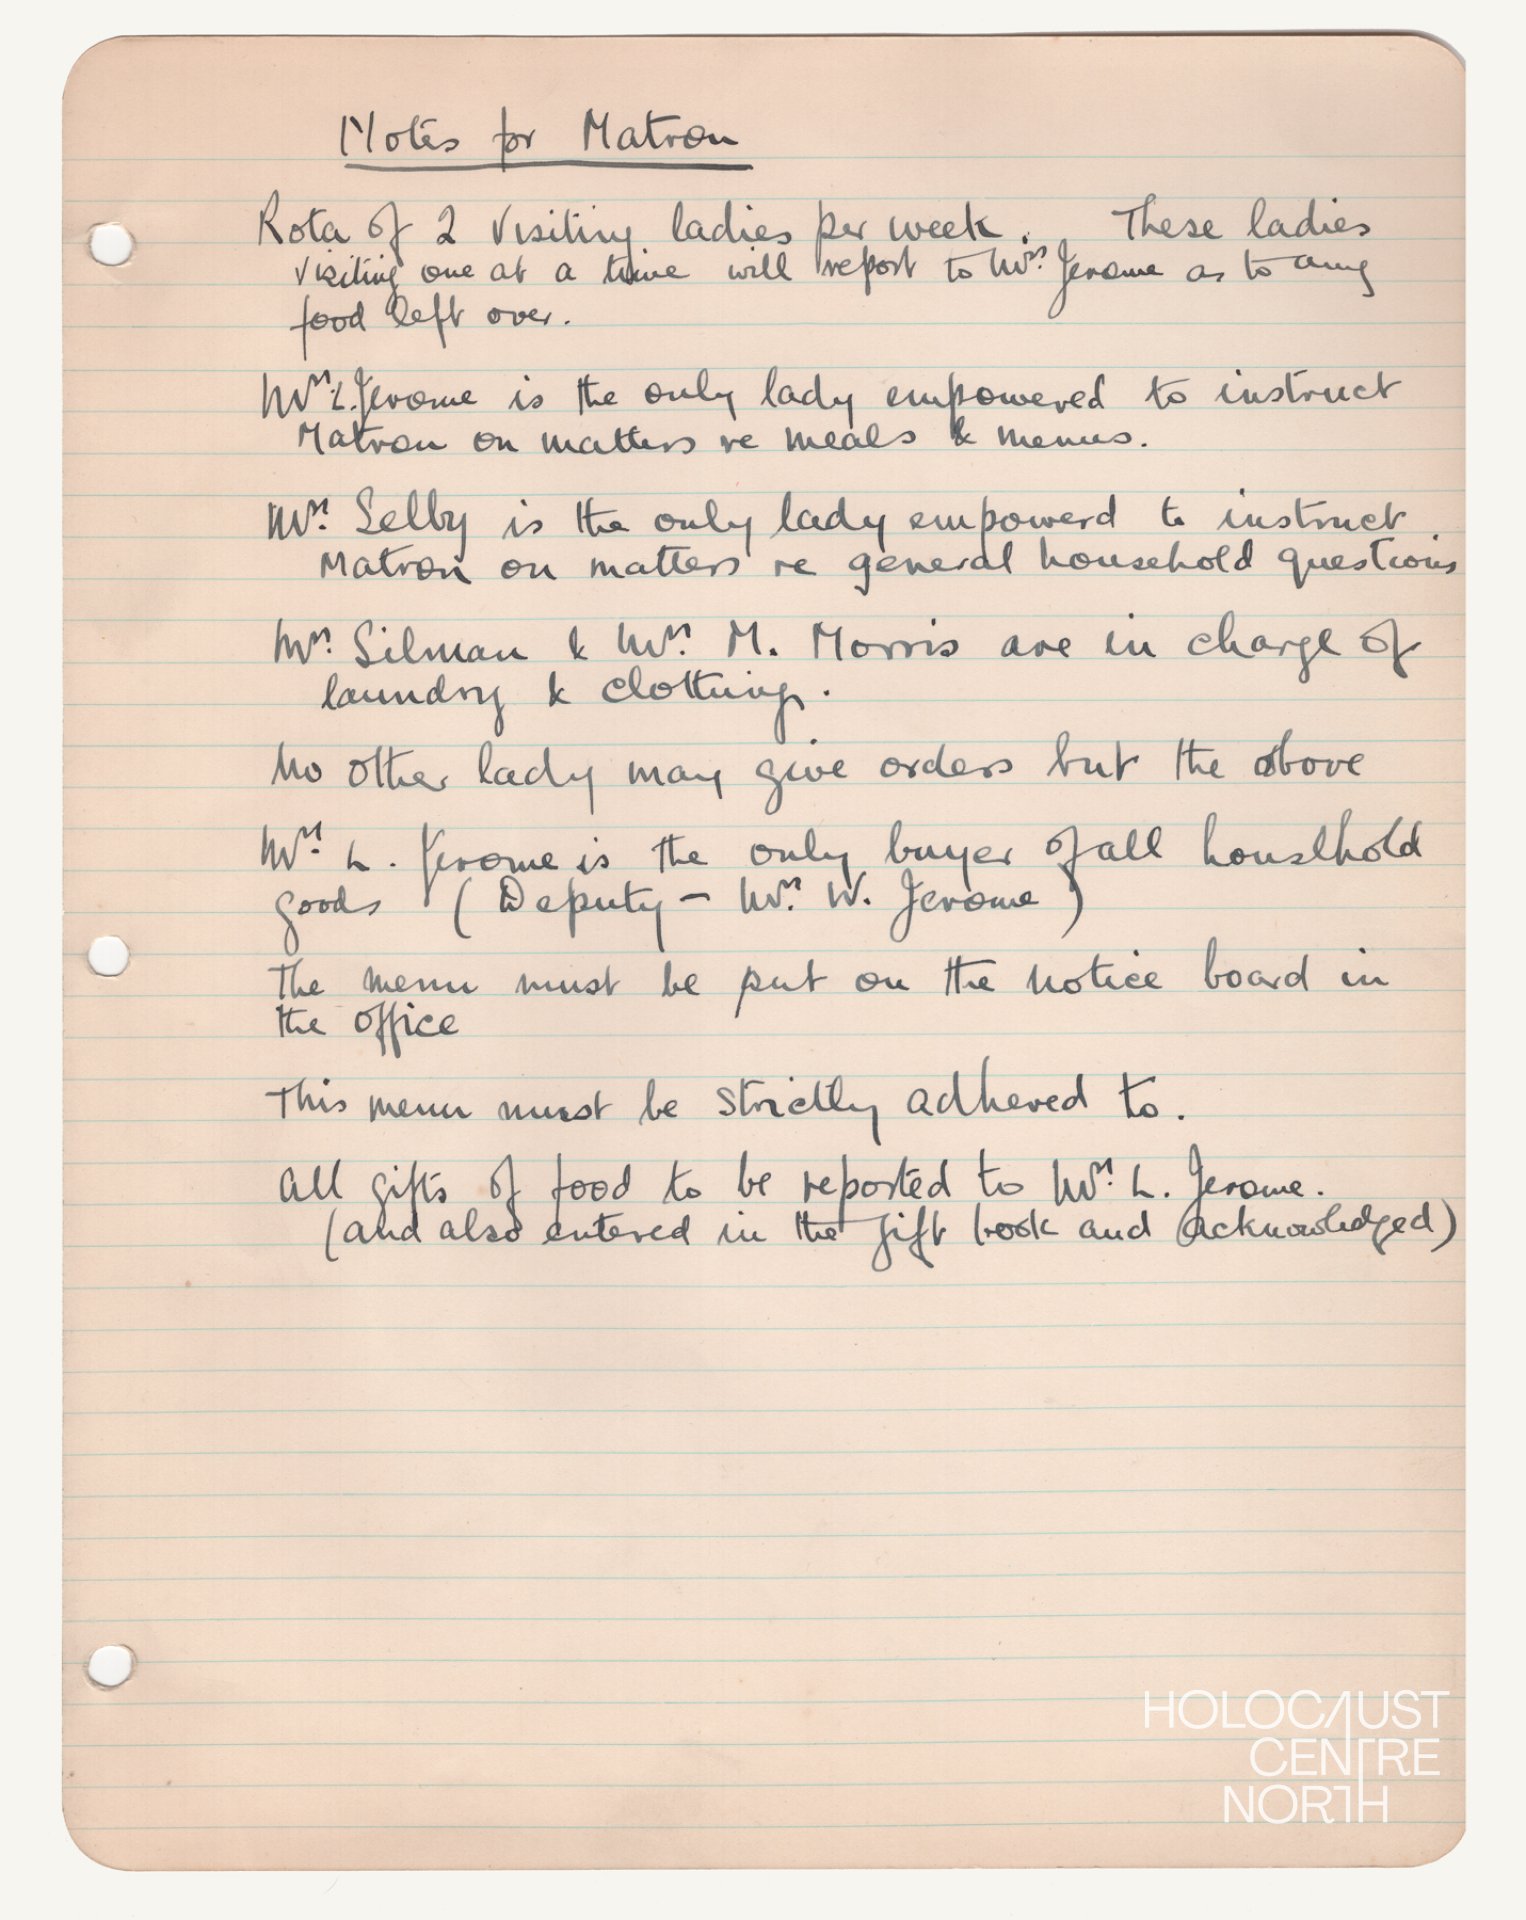 Notes for Matron
Rota of 2 Visiting ladies per week. These ladies
visiting one at a time will report to Mrs. Jerome as to any
food left over.
Mrs. L. Jerome is the only lady empowered to instruct
Matron on matters re meals & menus.
Mrs. Selby is the only lady empowerd to instruct
Matron on matters re general household questions
Mrs. Silman & Mrs. M. Morris are in charge of
laundry & clothing.
No other lady may give orders but the above
Mrs. L. Jerome is the only buyer of all household
goods (Deputy - Mrs. W. Jerome)
The menu must be put on the notice board in
the office
This menu must be strictly adhered to.
All gifts of food to be reported to Mrs. L. Jerome.
(and also entered in the gift book and acknowledged)
HOLOCAUST
CENTRE
NORTH